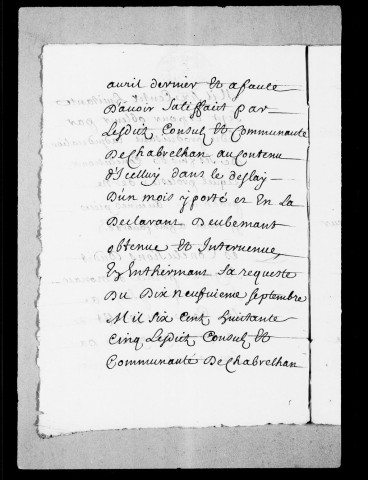 avril dernier Et a faute
D'avoir Satisffait par
Lesditz Consulz Et Communaute
De Chabrelhan au Contenu
d'Icelluy dans le deslay
D'un mois y porté et En La
Declarant Deubement
obtenue Et Intervenue,
Enthermant Sa requeste
Du Dix neufvieme Septembre
Mil Six Cent huictante
Cinq Lesditz Consulz Et
Communauté De Chabrelhan